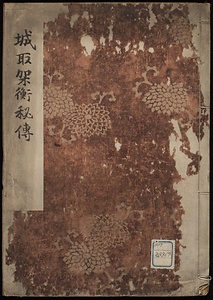 城取架衡秘傳